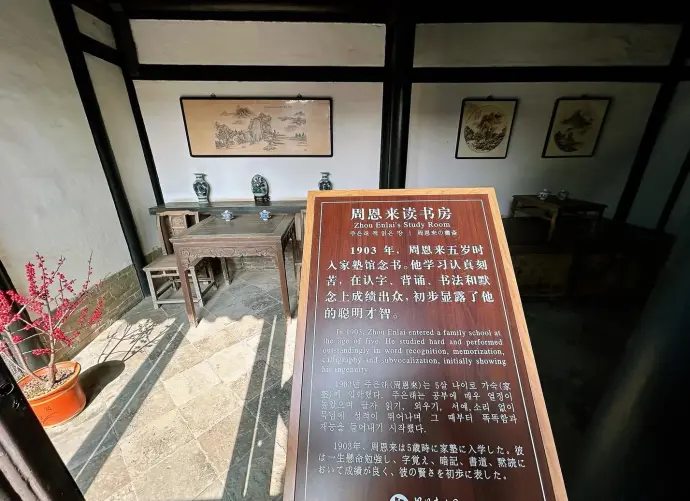 周恩来读书房
Zhou Enlai's Study Room
주은래 책 읽은 방 | 周恩来の書斎
1903 年，周恩来五岁时
入家塾馆念书。他学习认真刻
苦，在认字、背诵、书法和默
念上成绩出众，初步显露了他
的聪明才智。
In 1903, Zhou Enlai entered a family school at
the age of five. He studied hard and performed
outstandingly in word recognition, memorization,
calligraphy and subvocalization, initially showing
his ingenuity.
주은래(周恩来)는 5살 나이로 가숙(家
입학했다. 주은래는 공부에 매우 열정이
읽기, 외우기, 서예, 소리 없이
성적이 뛰어나며 그 때부터 똑똑함과
재능을 드러내기 시작했다.
1903年、周恩来は5歳時に家塾に入学した。彼
は一生懸命勉強し、字覚え、暗記、書道、黙読に
おいて成績が良く、彼の賢さを初歩に表した。